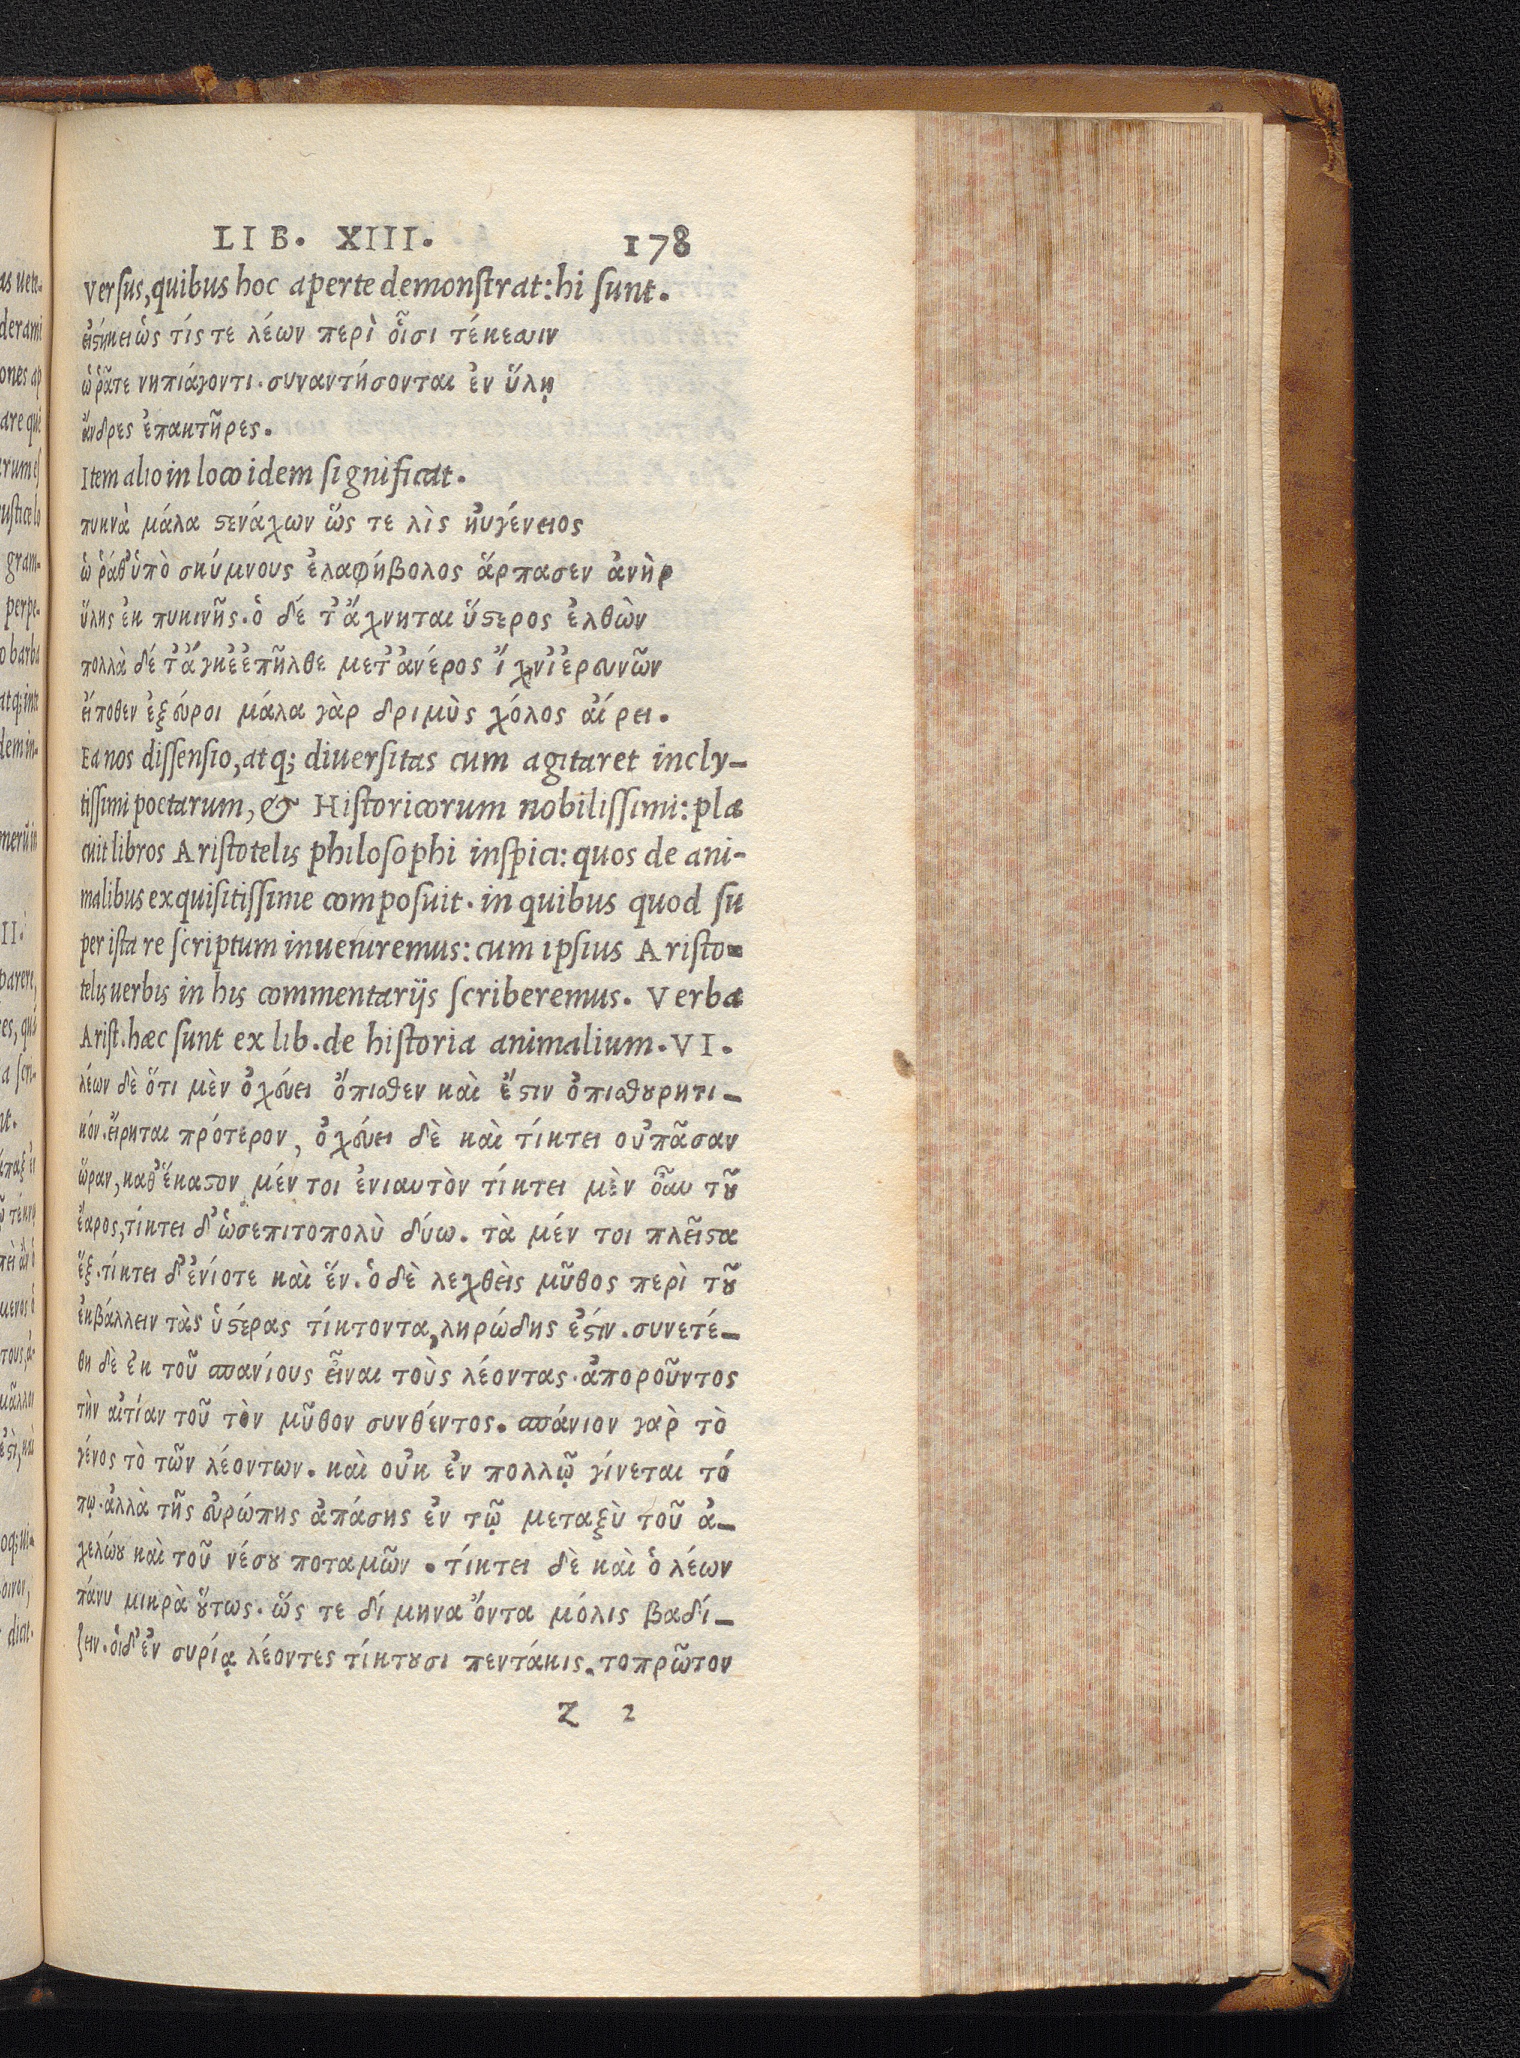 LIB. XIII. 178
Versus, quibus hoc aperte demonſtrat: hi ſunt.
εἱςήκει ὡς τίς τε λέων περὶ οἷσι τέκεσσιν
ᾧ ῥᾶτε νηπιάγοντι· συναντήσονται ἐν ὕλῃ
ἄνδρες ἐπακτῆρες.
Item alio in loco idem ſignificat.
πυκνὰ μάλα ςενάχων ὥς τε λὶς ἠυγένειος
ᾧ ῥάθ' ὑπὸ σκύμνους ἐλαφήβολος ἅρπασεν ἀνὴρ
ὕλης ἐκ πυκινῆς. ὁ δέ τ' ἄχνηται ὕςερος ἐλθὼν
πολλὰ δέ τ' ἄγκε' ἐπῆλθε μετ' ἀνέρος ἴχνι' ἐρευνῶν
εἴποθεν ἐξεύροι μάλα γὰρ δριμὺς χόλος αἱρεῖ.
Ea nos diſſenſio, atq; diuerſitas cum agitaret incly-
tiſſimi poetarum, & Hiſtoricorum nobiliſſimi: pla
cuit libros Ariſtotelis philoſophi inſpici: quos de ani-
malibus exquiſitiſſime compoſuit. in quibus quod ſu
per iſta re ſcriptum inueniremus: cum ipſius Ariſto-
telis uerbis in his commentarijs ſcriberemus. Verba
Ariſt. hæc ſunt ex lib. de hiſtoria animalium. VI.
λέων δὲ ὅτι μὲν ὀχεύει ὄπισθεν καὶ ἔςιν ὀπισθουρητι-
κόν. εἴρηται πρότερον, ὀχεύει δὲ καὶ τίκτει οὐ πᾶσαν
ὥραν, καθ' ἕκαςον μέν τοι ἐνιαυτὸν τίκτει μὲν οὖν τοῦ
ἔαρος, τίκτει δ' ὡσεπιτοπολὺ δύω. τὰ μέν τοι πλεῖςα
ἕξ. τίκτει δ' ἐνίοτε καὶ ἕν. ὁ δὲ λεχθεὶς μῦθος περὶ τοῦ
ἐκβάλλειν τὰς ὑςέρας τίκτοντα, ληρώδης ἐςίν. συνετέ-
θη δὲ ἐκ τοῦ σπανίους εἶναι τοὺς λέοντας. ἀποροῦντος
τὴν αἰτίαν τοῦ τὸν μῦθον συνθέντος. σπάνιον γὰρ τὸ
γένος τὸ τῶν λέοντων. καὶ οὐκ ἐν πολλῷ γίνεται τό
πῳ. ἀλλὰ τῆς εὐρώπης ἁπάσης ἐν τῷ μεταξὺ τοῦ ἀ-
χελώου καὶ τοῦ νέσου ποταμῶν. τίκτει δὲ καὶ ὁ λέων
πάνυ μικρὰ οὕτως. ὥς τε δίμηνα ὄντα μόλις βαδί-
ζειν. οἱ δ' ἐν συρίᾳ λέοντες τίκτουσι πεντάκις. τοπρῶτον
Z 2